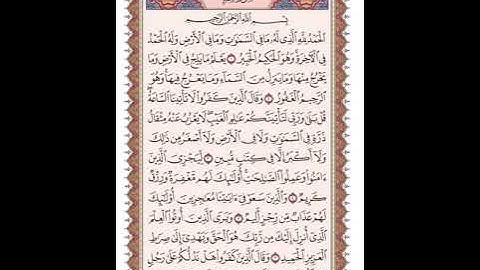 بِسْمِ اللَّهِ الرَّحْمَٰنِ الرَّحِيمِ
الْحَمْدُ لِلَّهِ الَّذِي لَهُ مَا فِي السَّمَاوَاتِ وَمَا فِي الْأَرْضِ وَلَهُ الْحَمْدُ
فِي الْآخِرَةِ وَهُوَ الْحَكِيمُ الْخَبِيرُ ۝ يَعْلَمُ مَا يَلِجُ فِي الْأَرْضِ وَمَا
يَخْرُجُ مِنْهَا وَمَا يَنزِلُ مِنَ السَّمَاءِ وَمَا يَعْرُجُ فِيهَا وَهُوَ
الرَّحِيمُ الْغَفُورُ ۝ وَقَالَ الَّذِينَ كَفَرُوا لَا تَأْتِينَا السَّاعَةُ
قُلْ بَلَىٰ وَرَبِّي لَتَأْتِيَنَّكُمْ عَالِمِ الْغَيْبِ لَا يَعْزُبُ عَنْهُ مِثْقَالُ
ذَرَّةٍ فِي السَّمَاوَاتِ وَلَا فِي الْأَرْضِ وَلَا أَصْغَرُ مِن ذَٰلِكَ
وَلَا أَكْبَرُ إِلَّا فِي كِتَابٍ مُّبِينٍ ۝ لِّيَجْزِيَ الَّذِينَ
آمَنُوا وَعَمِلُوا الصَّالِحَاتِ أُولَٰئِكَ لَهُم مَّغْفِرَةٌ وَرِزْقٌ
كَرِيمٌ ۝ وَالَّذِينَ سَعَوْ فِي آيَاتِنَا مُعَاجِزِينَ أُولَٰئِكَ
لَهُمْ عَذَابٌ مِّن رِّجْزٍ أَلِيمٌ ۝ وَيَرَى الَّذِينَ أُوتُوا الْعِلْمَ
الَّذِي أُنزِلَ إِلَيْكَ مِن رَّبِّكَ هُوَ الْحَقَّ وَيَهْدِي إِلَىٰ صِرَاطِ
الْعَزِيزِ الْحَمِيدِ ۝ وَقَالَ الَّذِينَ كَفَرُوا هَلْ نَدُلُّكُمْ عَلَىٰ رَجُلٍ